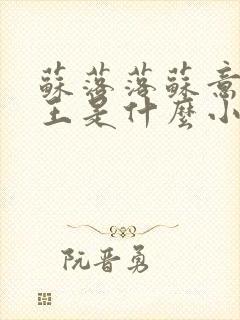 蘇落落蘇意
王是什麼小
阮晋勇